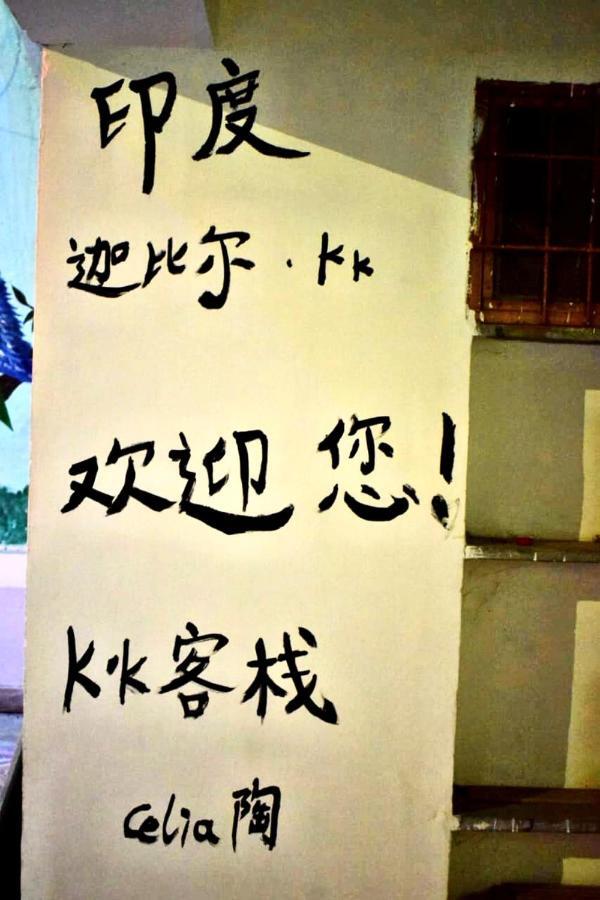 印度
迦比尔·KK
欢迎您!
K·K客栈
Celia陶